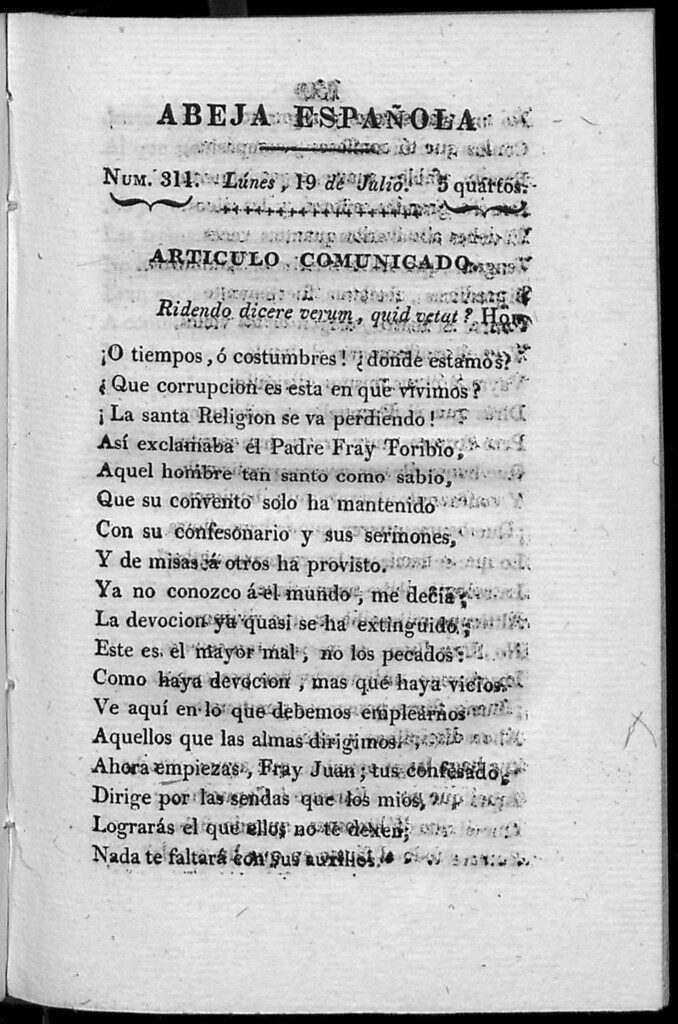 ABEJA ESPAÑOLA
NUM. 311. Lúnes, 19 de Julio. 5 quartos.
ARTICULO COMUNICADO.
Ridendo dicere verum, quid vetat? Hor.
¡O tiempos, ó costumbres! ¿donde estamos?
¿Que corrupcion es esta en que vivimos?
¡La santa Religion se va perdiendo!
Así exclamaba el Padre Fray Toribio,
Aquel hombre tan santo como sabio,
Que su convento solo ha mantenido
Con su confesonario y sus sermones,
Y de misas á otros ha provisto.
Ya no conozco á el mundo, me decia;
La devocion ya quasi se ha extinguido;
Este es el mayor mal, no los pecados:
Como haya devocion, mas que haya vicios.
Ve aquí en lo que debemos emplearnos
Aquellos que las almas dirigimos.
Ahora empiezas, Fray Juan; tus confesados
Dirige por las sendas que los mios,
Lograrás el que ellos no te dexen;
Nada te faltará con sus auxilios.